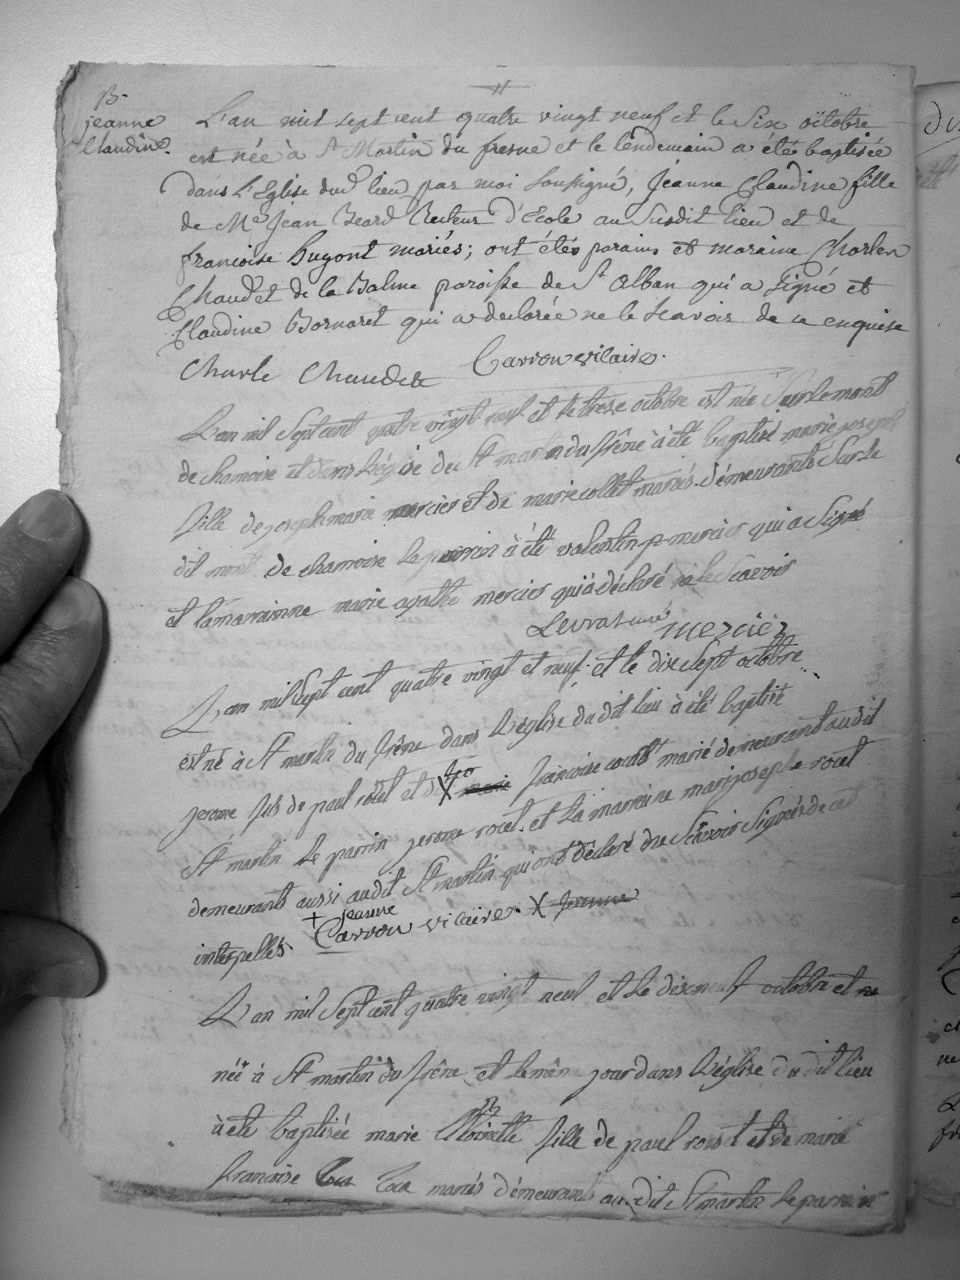 B.
jeanne
Claudine.
L'an mil sept cent quatre vingt neuf et le Six octobre
est née à St Martin du fresne et le lendemain a etés baptisée
dans L'Eglise dud. lieu par moi Soussigné, Jeanne Claudine fille
de Me Jean Beard Recteur d'Ecole au Susdit lieu et de
francoise Hugont mariés; ont étés parains et maraine Charlen
Chaudet de la Balme paroisse de St Alban qui a Signé et
Claudine Bornaret qui a declarée ne le Scavois de ce enquise
Charle Chaudet Carron vicaire.
L'an mil Sept cent quatre vingt neuf et le trese octobre est née Surlemont
de chamoise et dans L'église de St martin du frêne à été baptisé marie joseph
fille de joseph marie mercier et de marie collet mariés démeurants Surle
dit mont de chamoise Le parrin à été valentin p mercier qui a Signé
et la marrainne marie agathe mercier qui à déclaré ne le Scavois
Levrat curé mercier
L'an mil Sept cent quatre vingt et neuf et le dix Sept octobre
est né à St martin du frêne dans L'église du dit lieu à été baptisé
jerome fils de paul roset et de X marie françoise marié demeurant audit
St martin Le parrin jerome roset et La marrine marijosephe roset
demeurants aussi audit St martin qui ont déclaré ne Scavoir Signés de cet
interpellés + jeanne Carron vicaire. X jeanne
L'an mil Sept cent quatre vingt neuf et Le dixneuf octobre et ne
née à St martin du frêne et Lemême jour dans L'église du dit Lieu
à été baptisée marie fille de paul roset et de marie
francoise mariés démeurants au dit St martin Le parrin